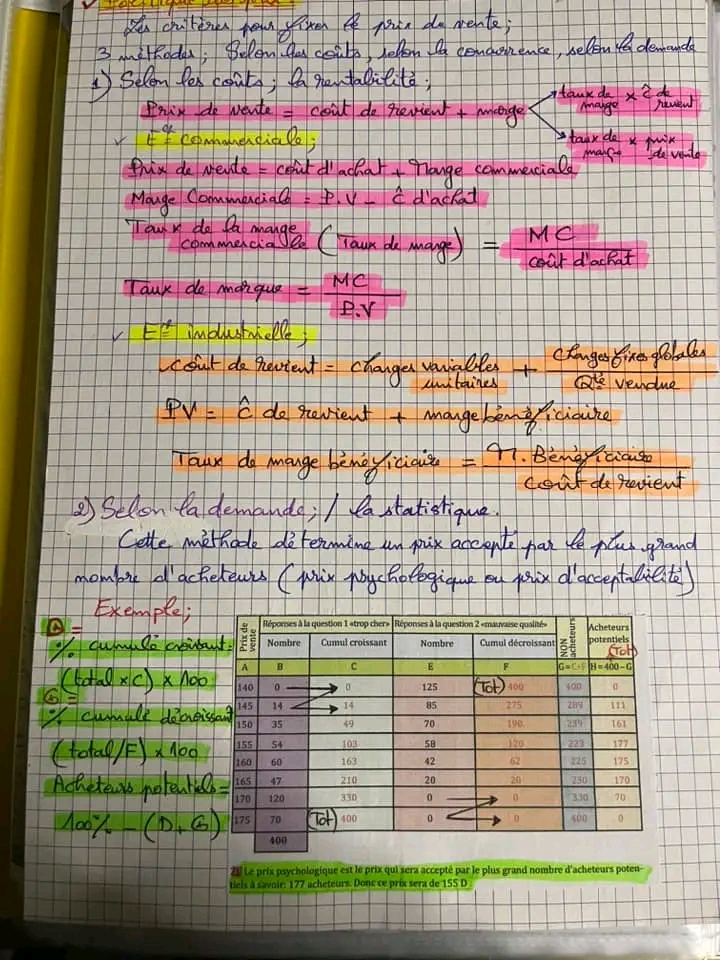 Les critères pour fixer le prix de vente;
3 méthodes; Selon les coûts, selon la concurrence, selon la demande
1) Selon les coûts; la rentabilité;
Prix de vente = coût de revient + marge
taux de marge x ĉ de revient
taux de marque x prix de vente
✓ Eᵉ commerciale;
Prix de vente = coût d'achat + Marge commerciale
Marge Commerciale = P.V - ĉ d'achat
Taux de la marge commerciale (Taux de marge) = MC / coût d'achat
Taux de marque = MC / P.V
✓ Eˢᵉ industrielle;
Coût de revient = charges variables unitaires + Charges fixes globales / Qté vendue
PV = ĉ de revient + marge bénéficiaire
Taux de marge bénéficiaire = M. Bénéficiaire / Coût de revient
2) Selon la demande; / la statistique.
Cette méthode détermine un prix accepté par le plus grand
nombre d'acheteurs (prix psychologique ou prix d'acceptabilité)
Exemple;
D =
% cumulé croissant =
(total x C) x 100
G =
% cumulé décroissant
(total/F) x 100
Acheteurs potentiels =
100% - (D + G)
Prix de vente | Réponses à la question 1 «trop cher» | Réponses à la question 2 «mauvaise qualité» | NON acheteurs | Acheteurs potentiels (Tot)
Nombre | Cumul croissant | Nombre | Cumul décroissant
A | B | C | E | F | G=C+F | H=400-G
140 | 0 | 0 | 125 | (Tot) 400 | 400 | 0
145 | 14 | 14 | 85 | 275 | 289 | 111
150 | 35 | 49 | 70 | 190 | 239 | 161
155 | 54 | 103 | 58 | 120 | 223 | 177
160 | 60 | 163 | 42 | 62 | 225 | 175
165 | 47 | 210 | 20 | 20 | 230 | 170
170 | 120 | 330 | 0 | 0 | 330 | 70
175 | 70 | (Tot) 400 | 0 | 0 | 400 | 0
400
2) Le prix psychologique est le prix qui sera accepté par le plus grand nombre d'acheteurs poten-
tiels à savoir: 177 acheteurs. Donc ce prix sera de 155 D